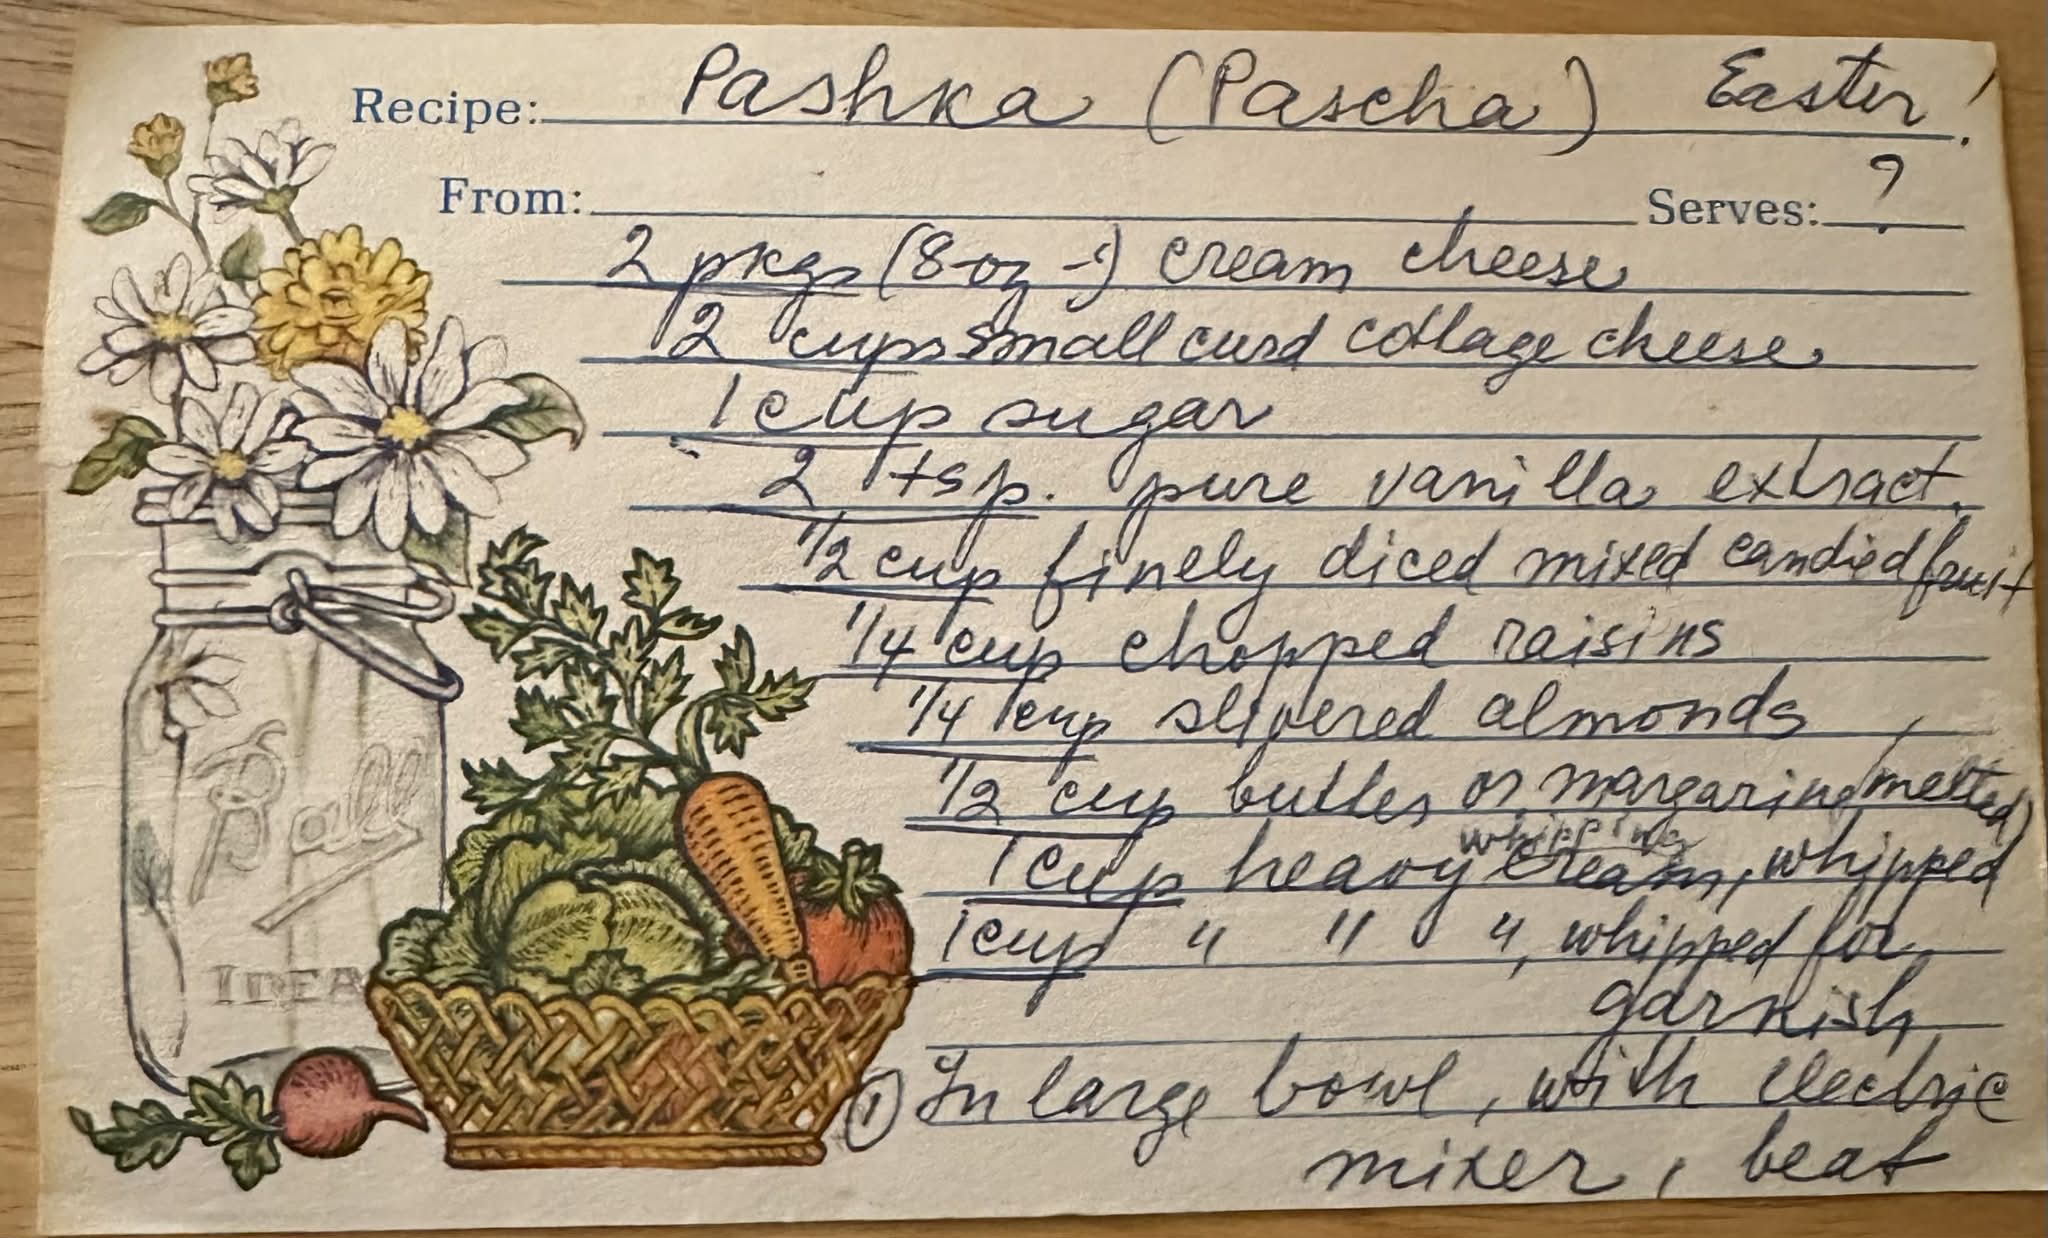 Recipe: Pashka (Pascha) Easter!
From: Serves: ?
2 pkgs (8-oz-) cream cheese
2 cups small curd cottage cheese
1 cup sugar
2 tsp. pure vanilla extract.
1/2 cup finely diced mixed candied fruit
1/4 cup chopped raisins
1/4 cup slivered almonds
1/2 cup butter or margarine (melted)
whipping
1 cup heavy cream, whipped
1 cup " " ", whipped for
garnish
① In large bowl, with electric
mixer, beat
Ball
IDEA